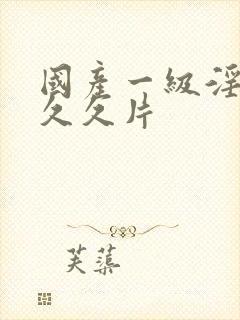 國產一級淫
久久片
芙蕖